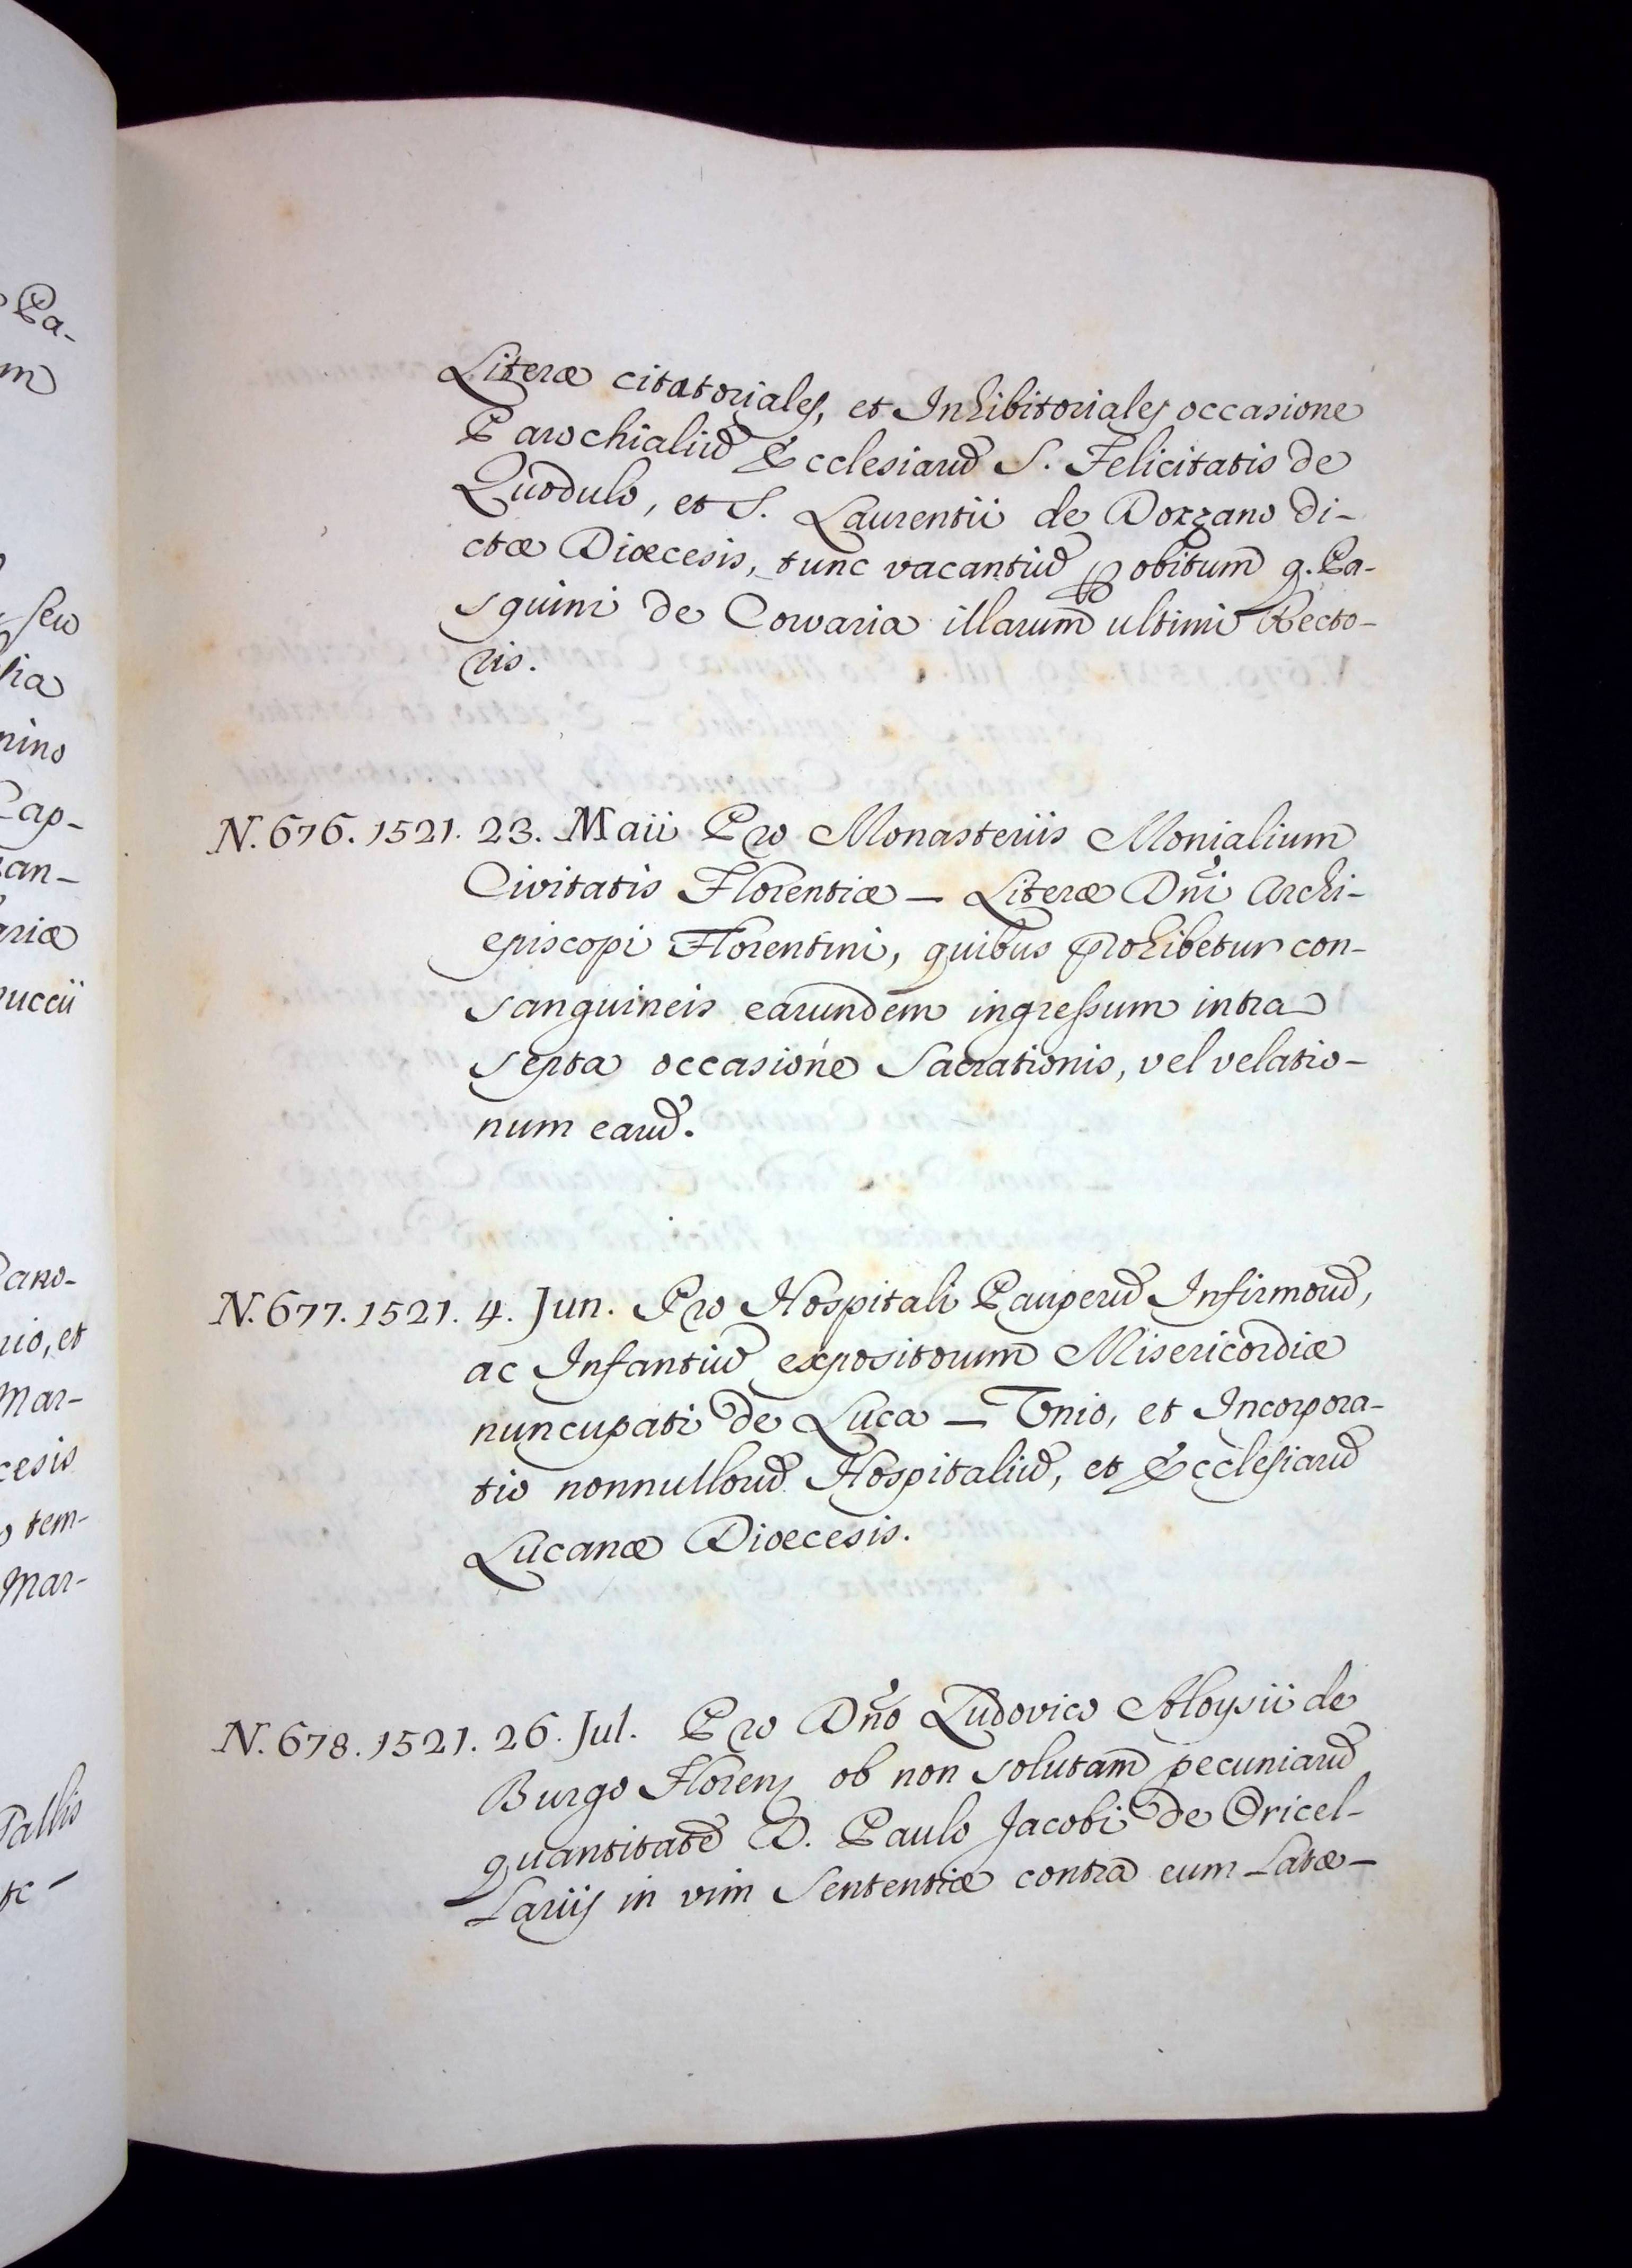 Pa-
m
seu
sia
nino
Cap-
san-
ariæ
nuccii
Cano-
rio, et
Mar-
cesis
o tem-
Mar-
Pallis
te-
Literæ citatoriales, et Inhibitoriales occasione
Parochialiũ Ecclesiarũ S. Felicitatis de
Quodulo, et S. Laurentii de Dorzano di-
ctæ Diœcesis, tunc vacantiũ ꝑ obitum q. Pa-
squini de Corvaria illarum ultimi Recto-
ris.
N. 676. 1521. 23. Maii Pro Monasteriis Monialium
Civitatis Florentiæ — Literæ Dñi Archi-
episcopi Florentini, quibus prohibetur con-
sanguineis earundem ingressum intra
septa occasione Sacrationis, vel velatio-
num earũ.
N. 677. 1521. 4. Jun. Pro Hospitali Pauperũ Infirmorũ,
ac Infantiũ expositorum Misericordiæ
nuncupati de Luca — Unio, et Incorpora-
tio nonnullorũ Hospitaliũ, et Ecclesiarũ
Lucanæ Diœcesis.
N. 678. 1521. 26. Jul. Pro Dño Ludovico Aloysii de
Burgo Floren; ob non solutam pecuniarũ
quantitatẽ D. Paulo Jacobi de Oricel-
lariis in vim Sententiæ contra eum Latæ-